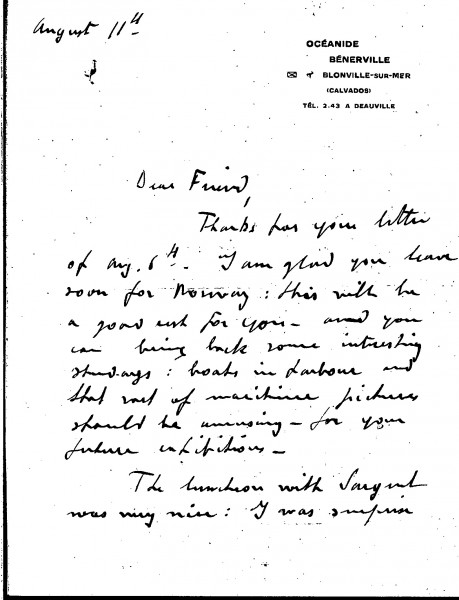 August 11th
OCÉANIDE
BÉNERVILLE
BLONVILLE-SUR-MER
(CALVADOS)
TÉL. 2.43 A DEAUVILLE
Dear Friend,
Thanks for your letter
of Aug. 6th. I am glad you leave
soon for Norway: this will be
a good rest for you - and you
can bring back some interesting
studays: boats in harbour and
that sort of maritime pictures
should be amusing - for your
future exhibitions -
The luncheon with Sargent
was very nice: I was surprise